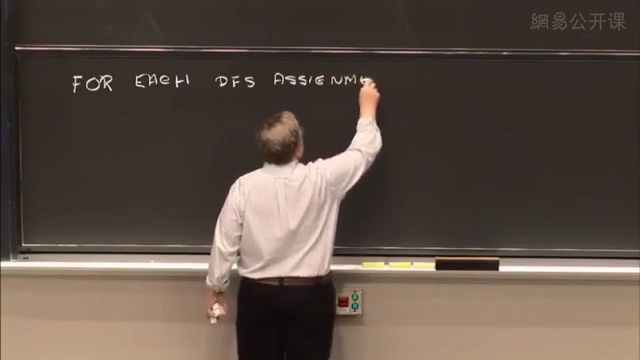 網易公开课
FOR EACH DFS ASSIGNME